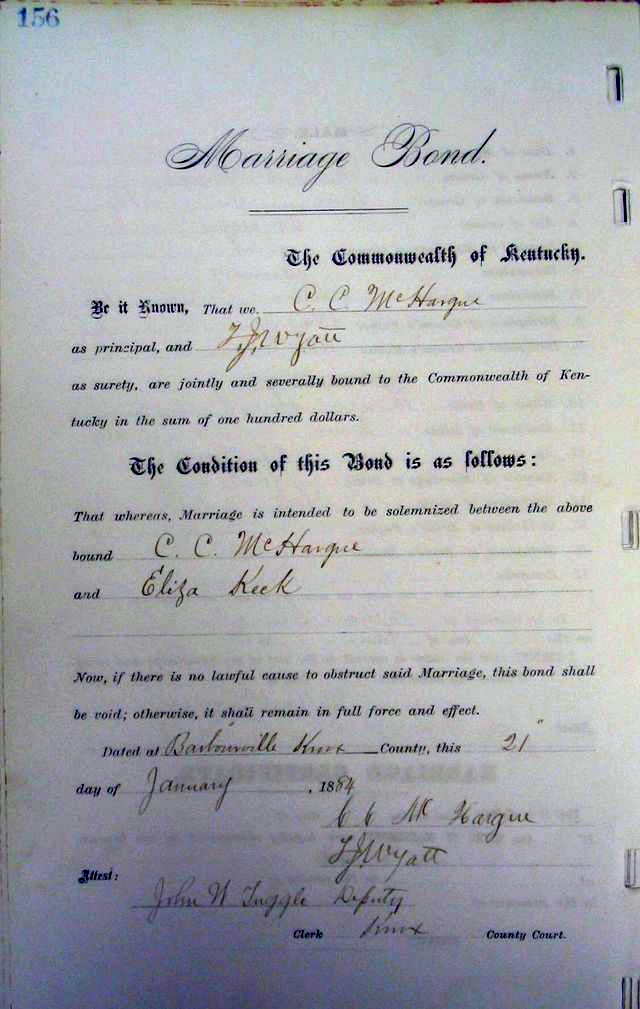 156
Marriage Bond.
The Commonwealth of Kentucky.
Be it Known, That we C. C. McHargue
as principal, and T. J. Wyatt
as surety, are jointly and severally bound to the Commonwealth of Ken-
tucky in the sum of one hundred dollars.
The Condition of this Bond is as follows:
That whereas, Marriage is intended to be solemnized between the above
bound C. C. McHargue
and Eliza Keck
Now, if there is no lawful cause to obstruct said Marriage, this bond shall
be void; otherwise, it shall remain in full force and effect.
Dated at Barbourville Knox County, this 21"
day of January, 1884
C C McHargue
T. J. Wyatt
Attest:
John W Tuggle Deputy
Clerk Knox County Court.